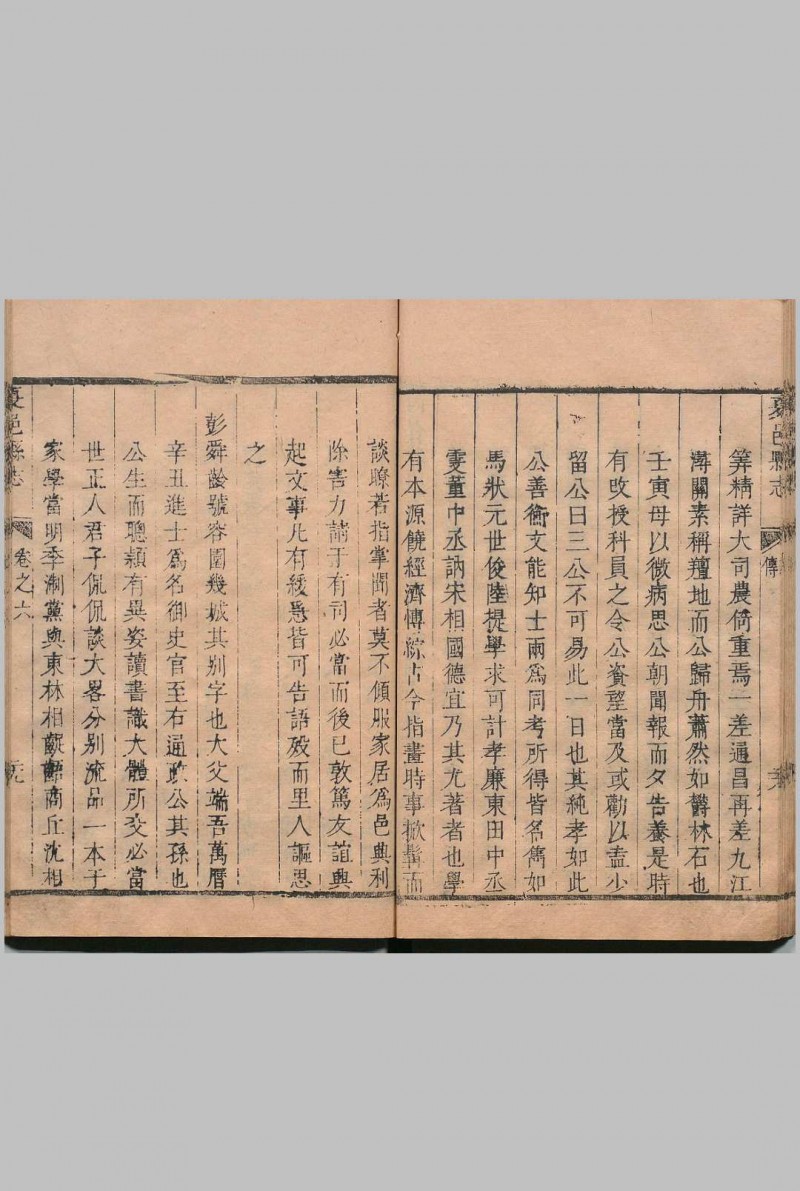 夏邑縣志
傳
筭精詳大司農倚重焉一差通昌再差九江
滸關素稱羶地而公歸舟蕭然如欝林石也
壬寅母以微病思公朝聞報而夕告養是時
有攺授科員之令公資望當及或勸以盍少
留公曰三公不可易此一日也其純孝如此
公善衡文能知士兩為同考所得皆名雋如
馬狀元世俊陸提學求可計孝廉東田中丞
雯董中丞訥宋相國德宜乃其尤著者也學
有本源饒經濟博綜古今指畫時事掀髯而
談瞭若指掌聞者莫不傾服家居為邑興利
除害力請于有司必當而後已敦篤友誼興
起文事凡有緩急皆可告語歿而里人謳思
之
彭舜齡號容園幾城其别字也大父端吾萬曆
辛丑進士為名御史官至右通政公其孫也
公生而聰頴有異姿讀書識大體所交必當
世正人君子侃侃談大畧分别流品一本于
家學當明季淛黨與東林相齮齕商丘沈相
夏邑縣志
卷之六